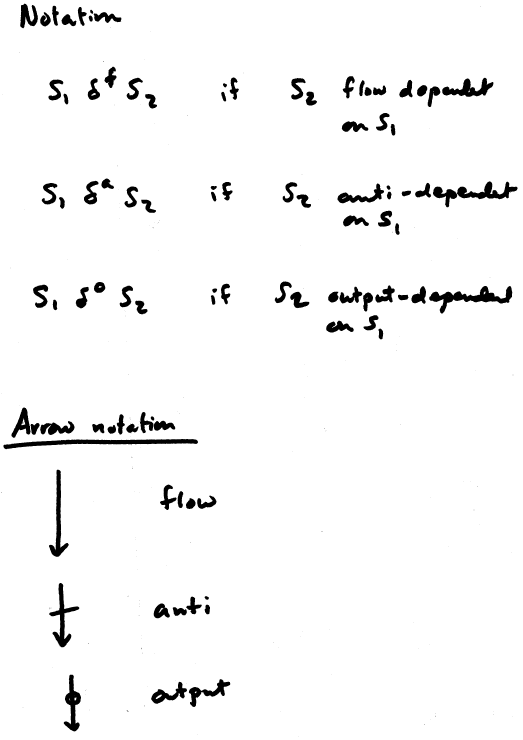 Notation
S₁ δᶠ S₂ if S₂ flow dependent
on S₁
S₁ δᵃ S₂ if S₂ anti-dependent
on S₁
S₁ δᵒ S₂ if S₂ output-dependent
on S₁
Arrow notation
flow
anti
output